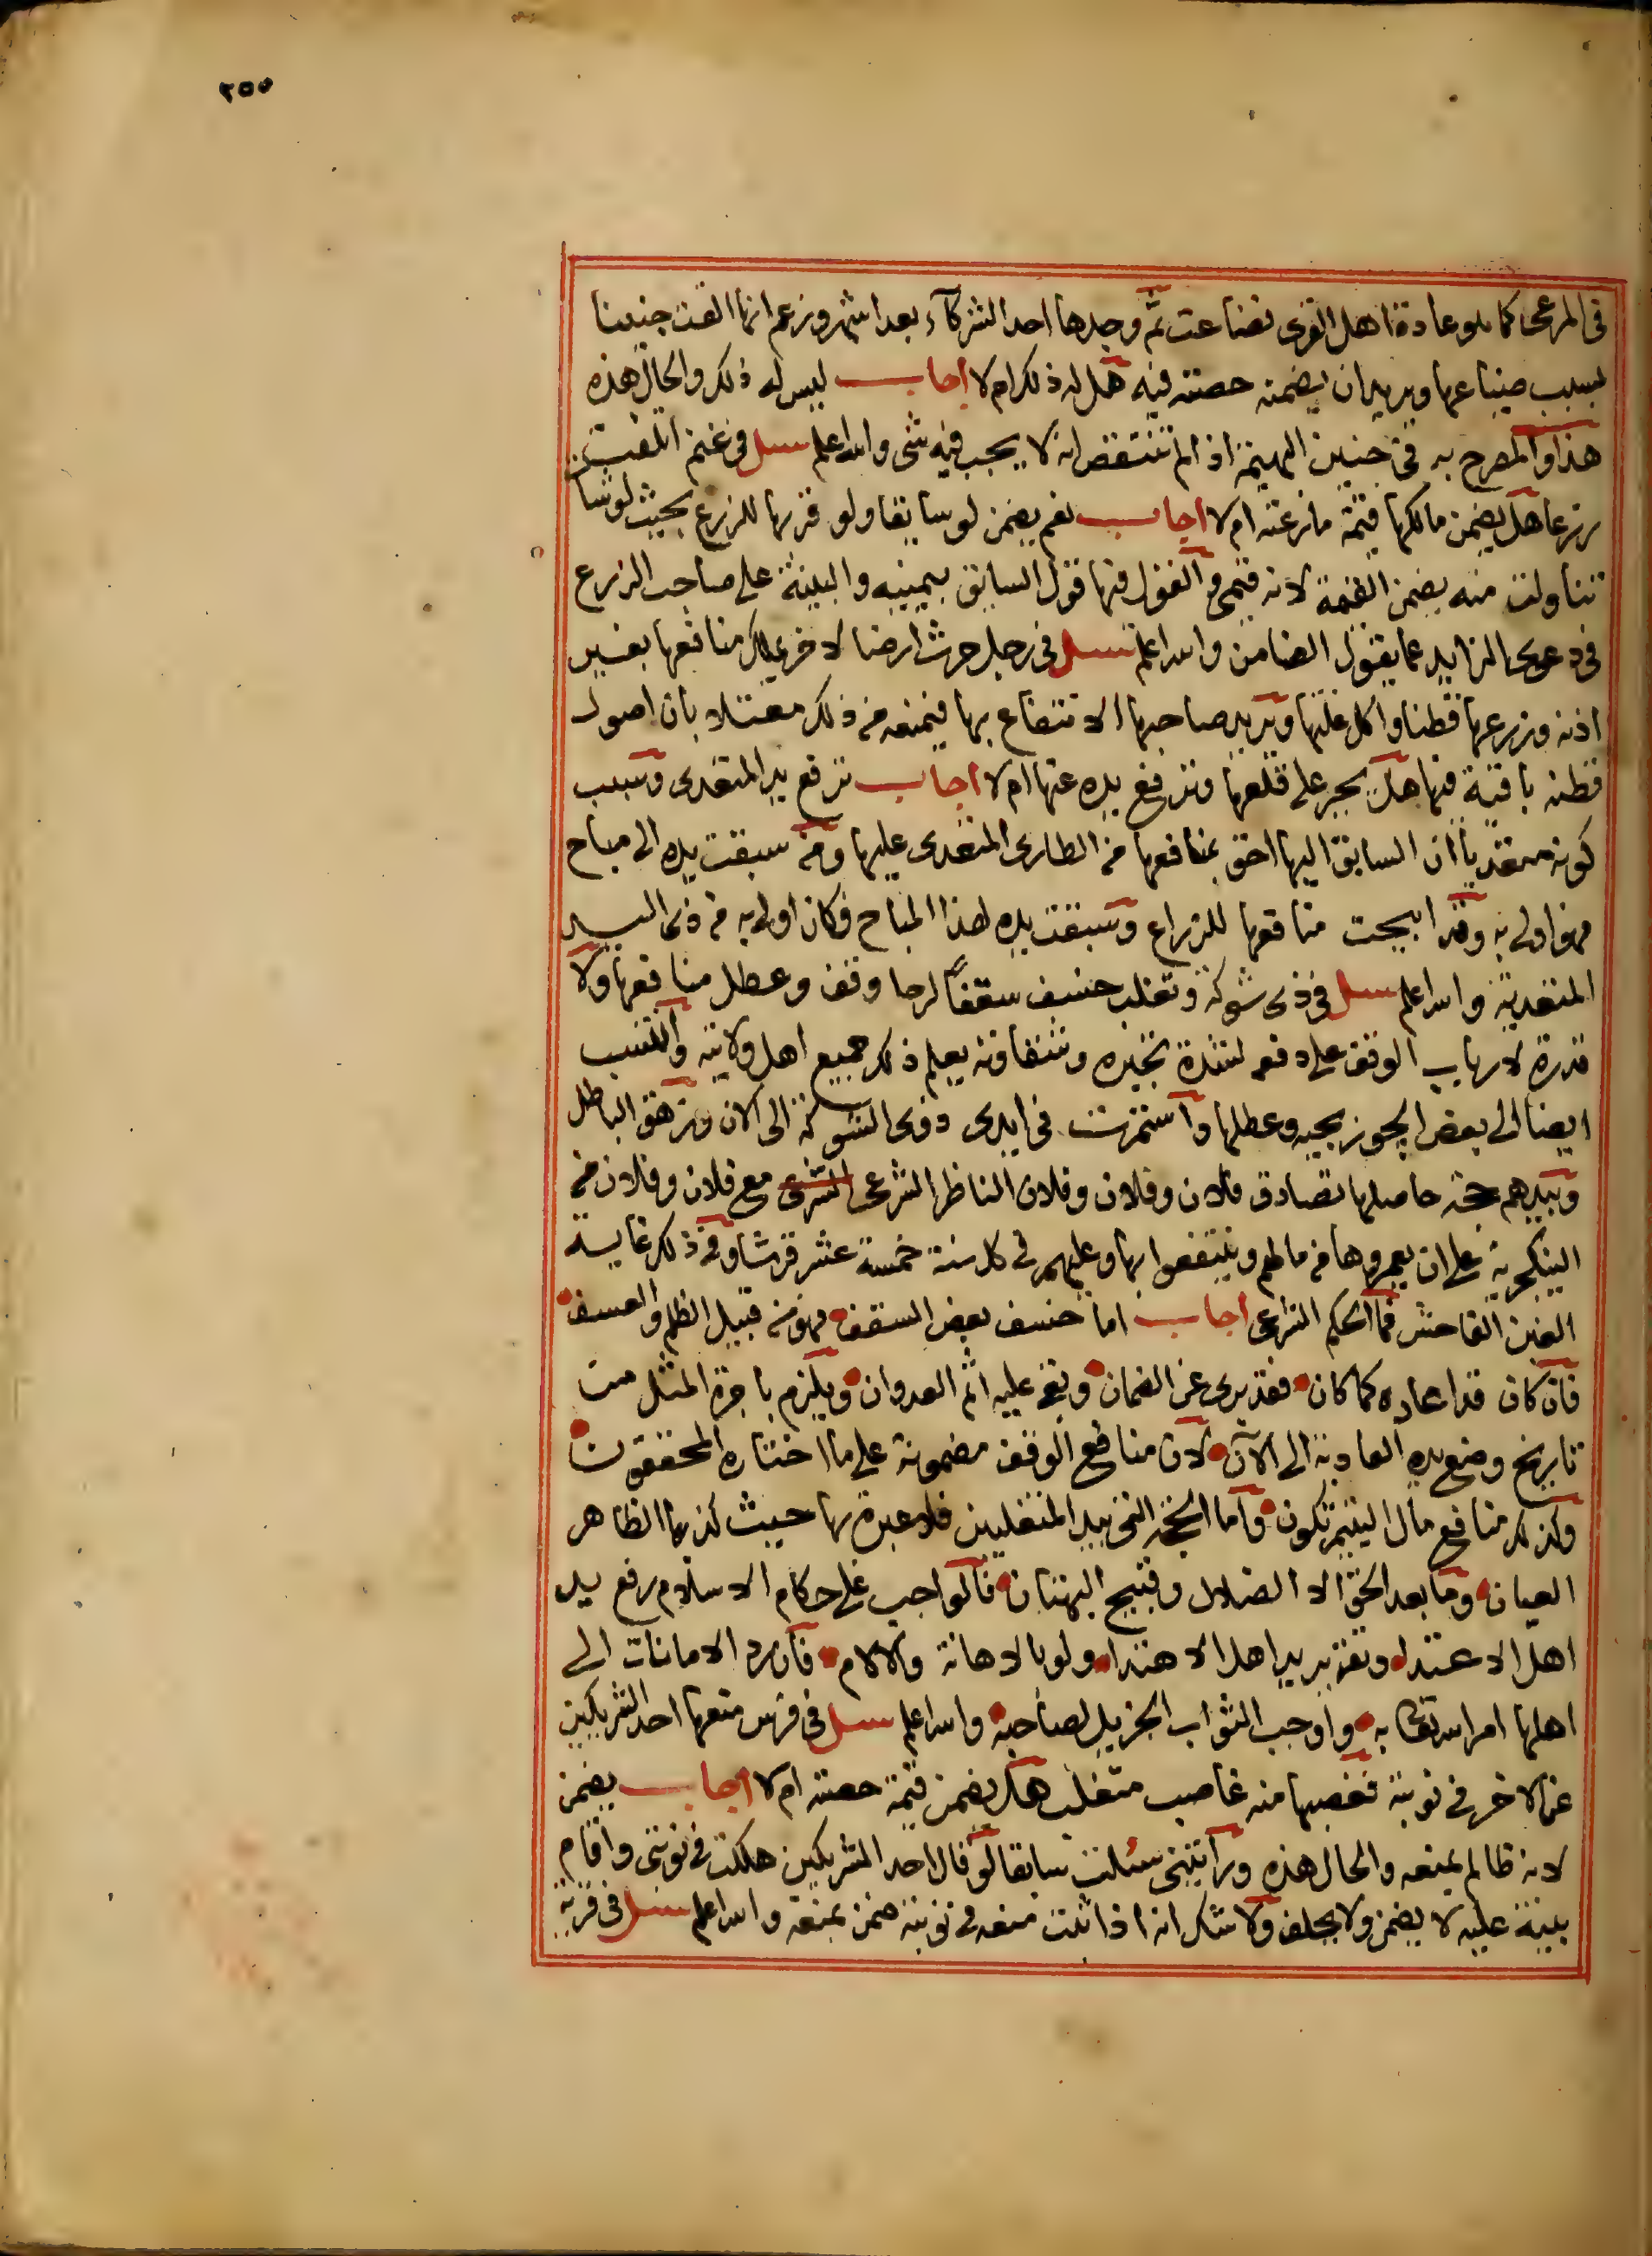 ٢٥٥
في المرعى كما هو عادة اهل القرى فضاعت ثم وجدها احد الشركآء بعد اشهر وزعم انها القت جنينا
بسبب ضياعها ويريد ان يضمنه حصته فيه هل له ذلك ام لا اجاب ليس له ذلك والحال هذه
هذا والمصرح به في جنين البهيمة اذا لم تنتقص انه لا يجب فيه شي والله اعلم سئل في غنم اتلفت
زرعا هل يضمن مالكها قيمة ما رعته ام لا اجاب نعم يضمن لو سايقا ولو قربها للزرع بحيث لو شا
تناولت منه يضمن القيمة لانه قيمي والقول فيها قول السايق بيمينه والبينة على صاحب الزرع
في دعوى الزايد عما يقول الضامن والله اعلم سئل في رجل حرث ارضا لاخر يملك منافعها بغير
اذنه وزرعها قطنا واكل غلتها ويريد صاحبها الانتفاع بها فيمنعه من ذلك معتلا بان اصول
قطنه باقية فيها هل يجبر على قلعها وترفع يده عنها ام لا اجاب ترفع يد المتعدى وسبب
كونه متعديا ان السابق اليها احق بمنافعها من الطارى المتعدى عليها ومن سبقت يده الى مباح
فهو اولى به وقد ابيحت منافعها للزراع وسبقت يده لهذا المباح فكان اولى به من ذى اليد
المتعدية والله اعلم سئل في ذى شوكة وتغلب خسف سقفا لرحا وقف وعطل منافعها ولا
قدرة لارباب الوقف على دفعه لشدة تجبره وشقاوته يعلم ذلك جميع اهل ولايته والتسب
ايضا الى بعض وعطلها واستمرت في ايدى ذوى الشوكة الى الان وزهق الباطل
وبيدهم حجة حاصلها تصادق فلان وفلان وفلان الناظر الشرعى الشرعى مع فلان وفلان من
الينكجرية على ان يعمروها من مالهم وينتفعوا بها وعليهم في كل سنة خمسة عشر قرشا وفي ذلك غاية
الغبن الفاحش فما الحكم الشرعى اجاب اما خسف بعض السقف فهو من قبيل الظلم والعسف
فان كان قد اعاده كما كان فقد برى عن الضمان وبقى عليه اثم العدوان ويلزم باجرة المثل من
تاريخ وضع يده العادية الى الآن لان منافع الوقف مضمونة على ما اختاره المحققون
وكذلك منافع مال اليتيم تكون واما الحجة التي بيد المتغلبين فلا عبرة بها حيث كذبها الظاهر
العيان وما بعد الحق الا الضلال وقبيح البهتان فالواجب على حكام الاسلام رفع يد
اهل الاعتدا وتقرير يد اهل الاهتدا ولو بالاهانة والالام فان رد الامانات الى
اهلها امر الله تعالى به واوجب الثواب الجزيل لصاحبه والله اعلم سئل في فرس منعها احد الشريكين
عن الاخر في نوبته فغصبها منه غاصب متغلب هل يضمن قيمة حصته ام لا اجاب يضمن
لانه ظالم بمنعه والحال هذه ورأيتني سئلت سابقا لو قال احد الشريكين هلكت في نوبتى واقام
بينة عليه لا يضمن ولا يحلف ولا شك انه اذا ثبت منعه في نوبته ضمن بمنعه والله اعلم سئل في قرية